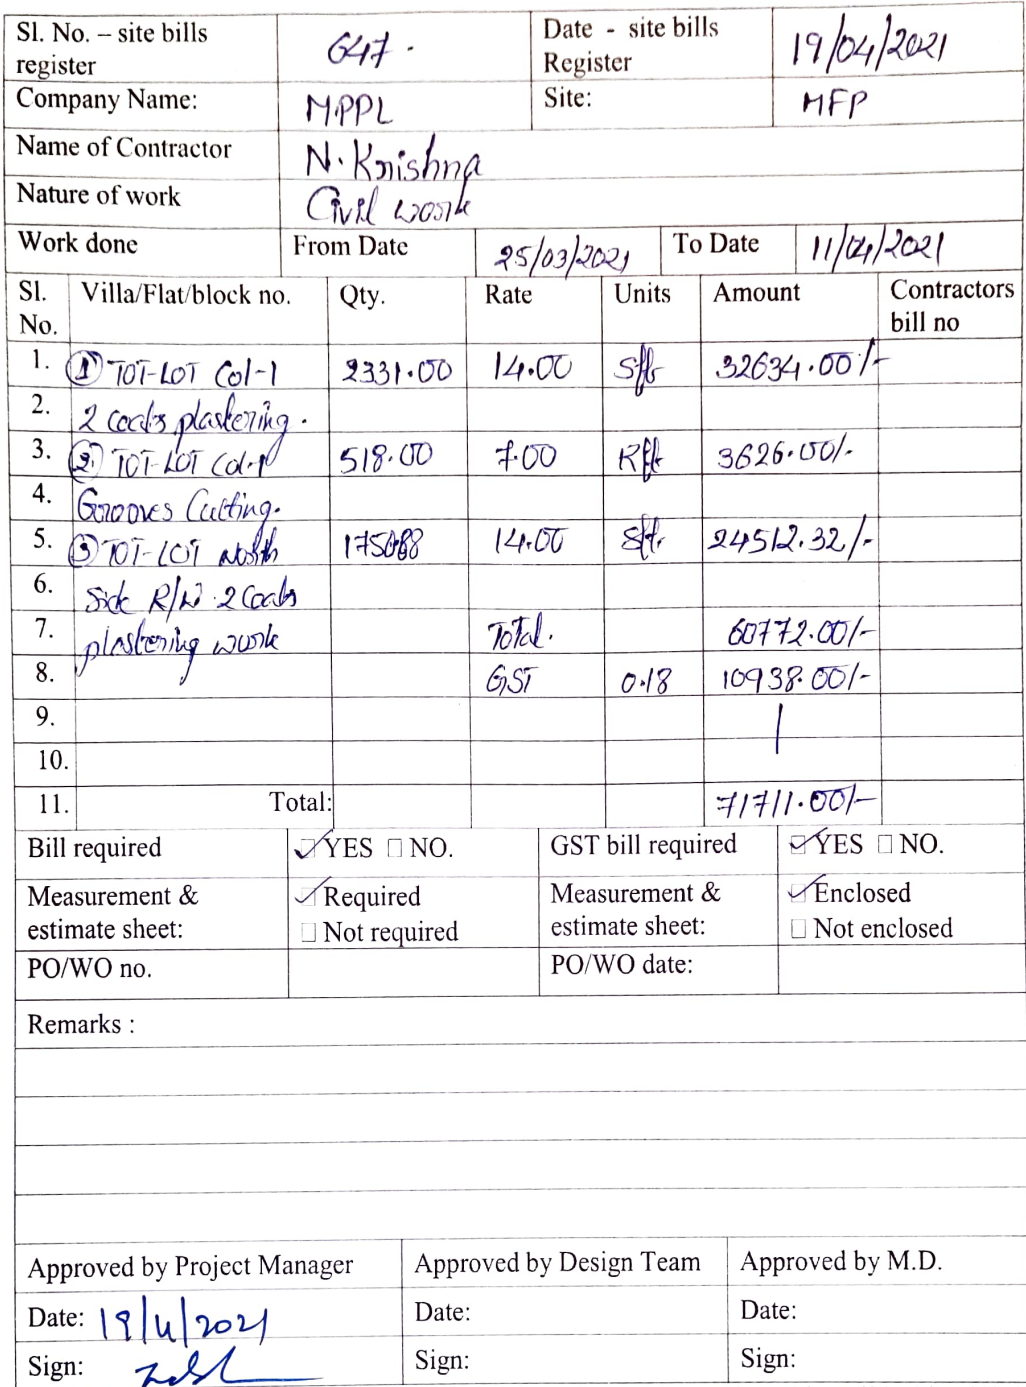 Sl. No. – site bills register 647. Date - site bills Register 19/04/2021
Company Name: M.PPL Site: MFP
Name of Contractor N. Krishna
Nature of work Civil work
Work done From Date 25/03/2021 To Date 11/04/2021
Sl. No. Villa/Flat/block no. Qty. Rate Units Amount Contractors bill no
1. ① TOT-LOT Col-1 2331.00 14.00 Sft 32634.00/-
2. 2 coats plastering.
3. ② TOT-LOT Col-1 518.00 7.00 Rft 3626.00/-
4. Grooves Cutting.
5. ③ TOT-LOT North 14.00 Sft. 24512.32/-
6. Side R/W 2 Coats
7. plastering work Total. 60772.00/-
8. GST 0.18 10938.00/-
9.
10.
11. Total: 71711.00/-
Bill required ☑YES □ NO. GST bill required ☑YES □ NO.
Measurement & estimate sheet: ☑Required □ Not required Measurement & estimate sheet: ☑Enclosed □ Not enclosed
PO/WO no. PO/WO date:
Remarks :
Approved by Project Manager Approved by Design Team Approved by M.D.
Date: 19/4/2021 Date: Date:
Sign: Sign: Sign: